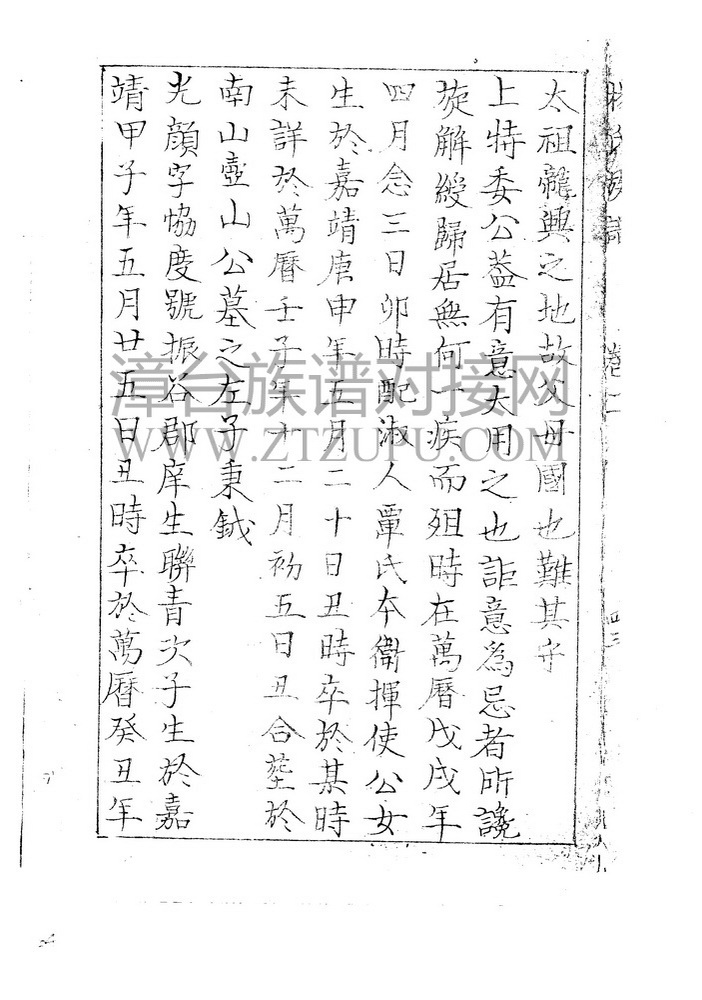 太祖龍興之地故父母國也難其守
上特委公蓋有意大用之也詎意為忌者所讒
旋解綬歸居無何一疾而殂時在萬曆戊戌年
四月念三日卯時配淑人覃氏本衛揮使公女
生於嘉靖庚申年五月二十日丑時卒於某時
未詳於萬曆壬子年十二月初五日丑合塟於
南山壺山公墓之左子秉鉞
光顏字恊度號振谷郡庠生聯青次子生於嘉
靖甲子年五月廿五日丑時卒於萬曆癸丑年
漳台族谱对接网
WWW.ZTZUPU.COM